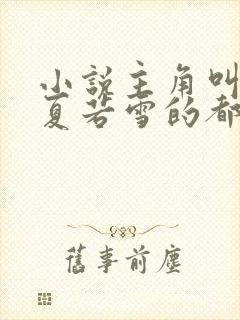 小说主角叫
夏若雪的都
舊事前塵